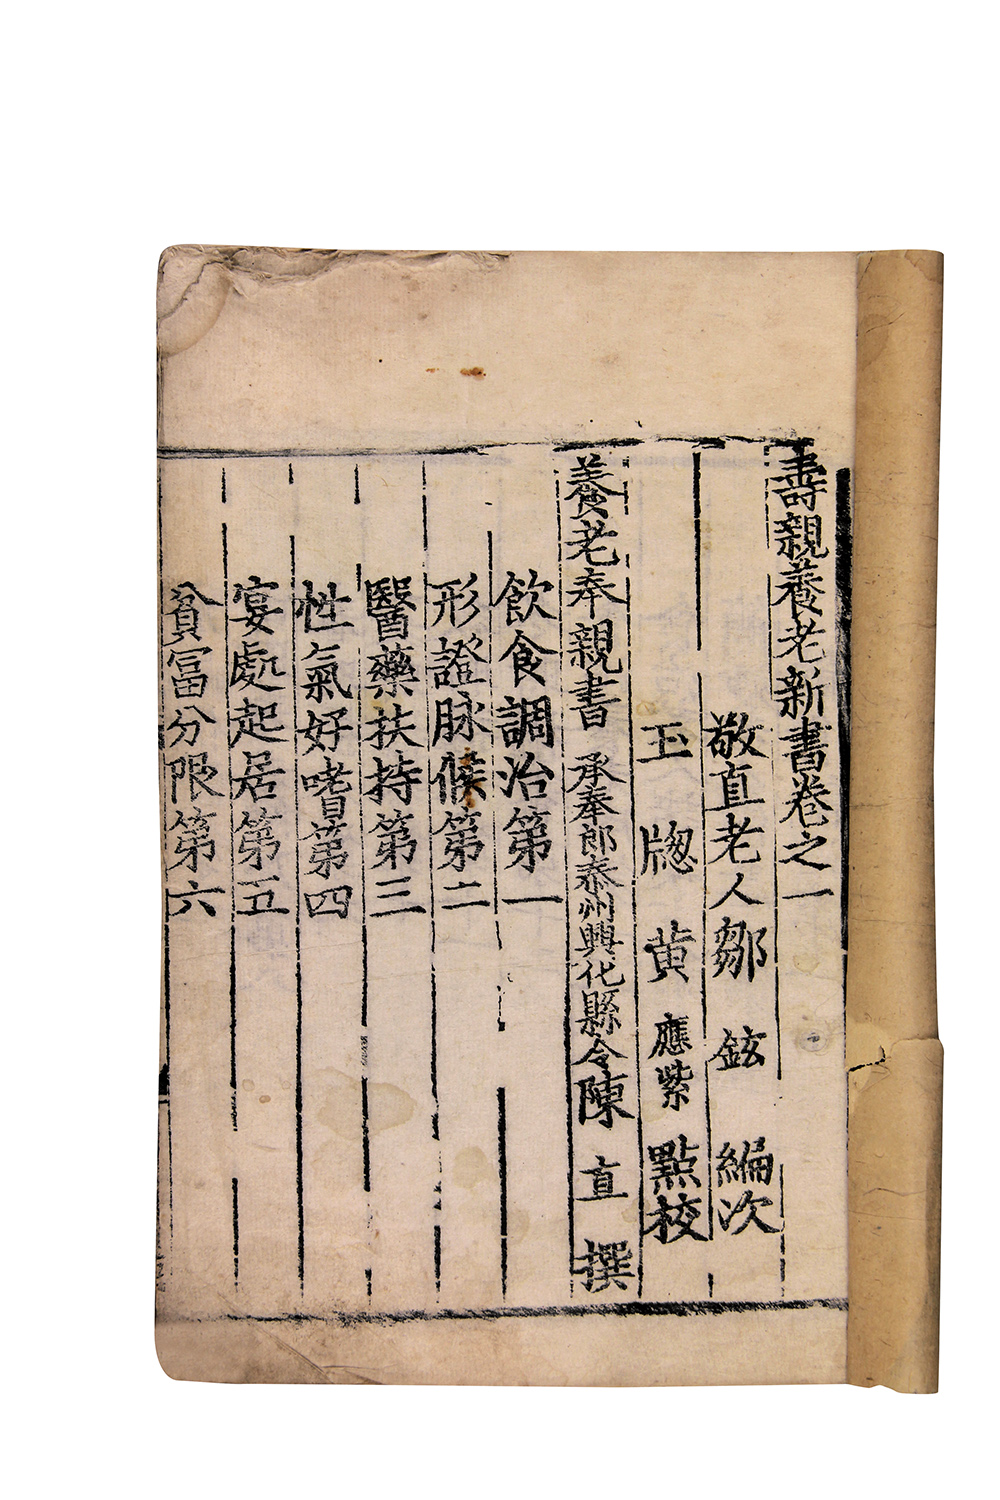 壽親養老新書卷之一
敬直老人鄒 鉉 編次
玉牕黄應紫 點校
養老奉親書 承奉郎泰州興化縣令陳 直 撰
飲食調治第一
形證脉候第二
醫藥扶持第三
性氣好嗜第四
宴處起居第五
貧冨分限第六